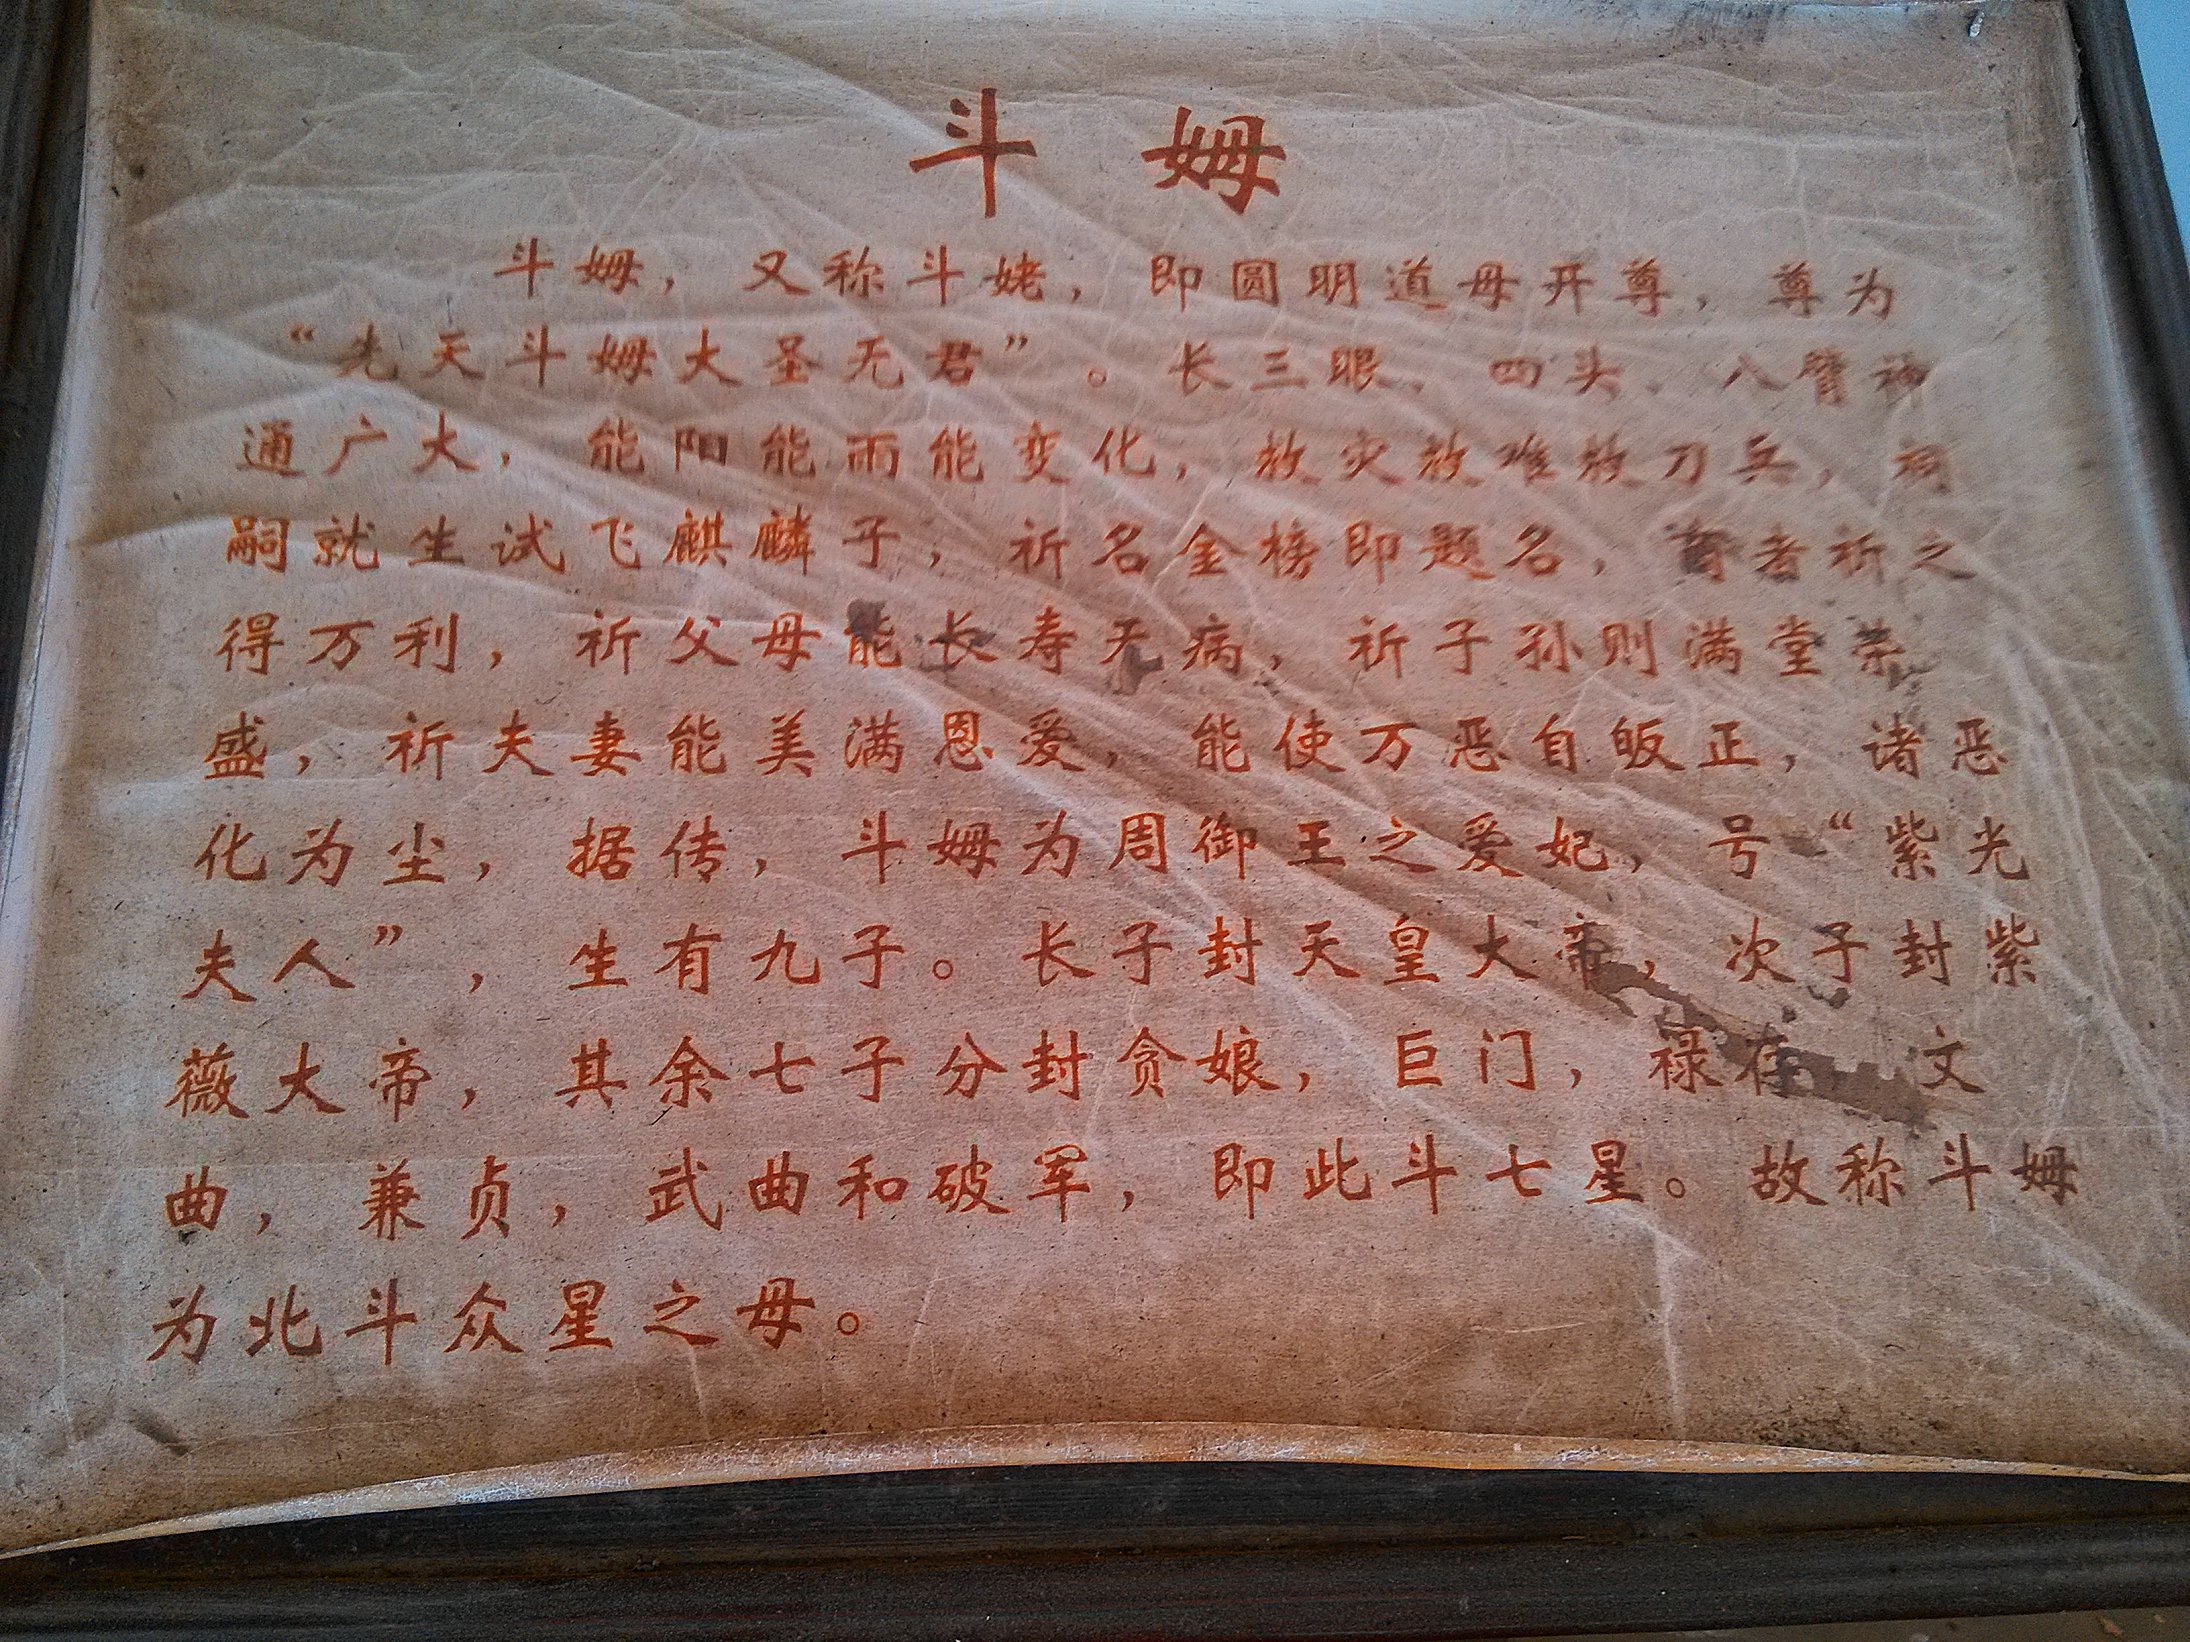 斗 姆
斗姆，又称斗姥，即圆明道母开尊，尊为
“先天斗姆大圣无君”。长三眼、四头、八臂神
通广大，能阳能雨能变化，救灾救难救刀兵，祠
嗣就生试飞麒麟子，祈名金榜即题名，者祈之
得万利，祈父母能长寿无病，祈子孙则满堂荣
盛，祈夫妻能美满恩爱，能使万恶自皈正，诸恶
化为尘，据传，斗姆为周御王之爱妃，号“紫光
夫人”，生有九子。长子封天皇大帝，次子封紫
薇大帝，其余七子分封贪娘，巨门，禄存 文
曲，兼贞，武曲和破军，即此斗七星。故称斗姆
为北斗众星之母。